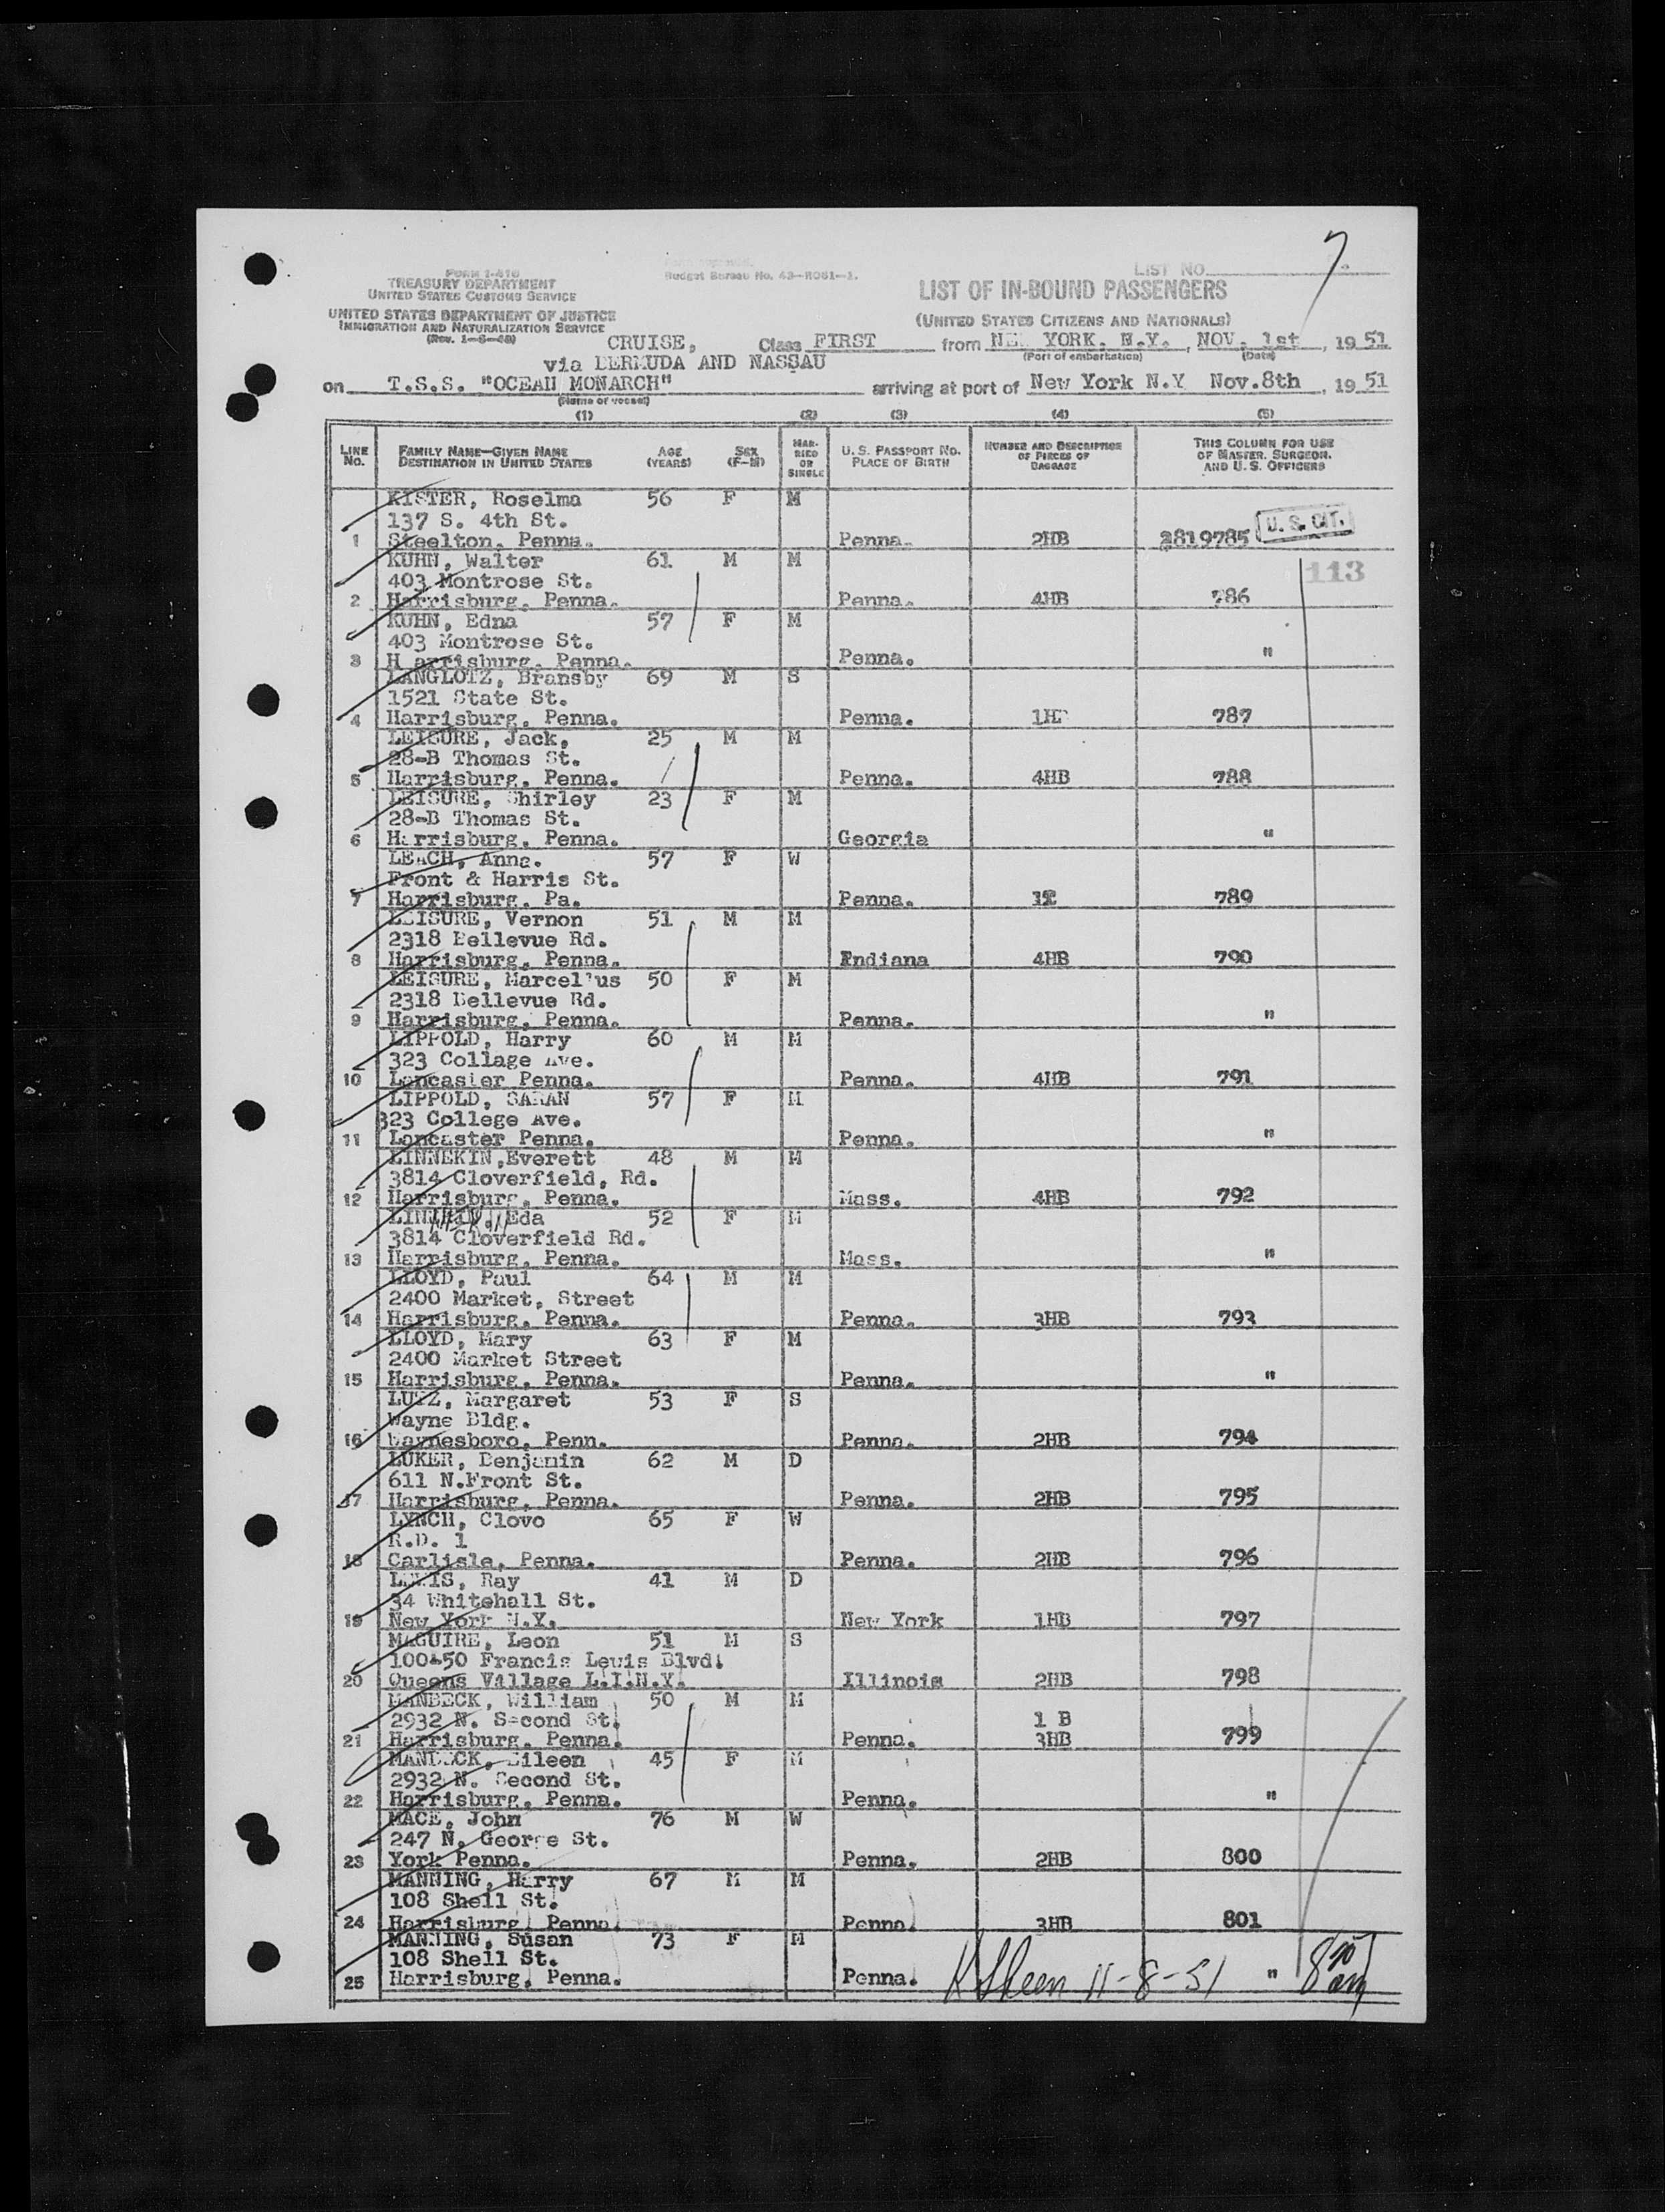 7
FORM I-416
TREASURY DEPARTMENT
UNITED STATES CUSTOMS SERVICE
UNITED STATES DEPARTMENT OF JUSTICE
IMMIGRATION AND NATURALIZATION SERVICE
Budget Bureau No. 43-R081-1.
LIST NO.
LIST OF IN-BOUND PASSENGERS
(UNITED STATES CITIZENS AND NATIONALS)
CRUISE, Class FIRST from NEW YORK. N.Y., NOV. 1st, 1951
(Port of embarkation) (Date)
via BERMUDA AND NASSAU
on T.S.S. "OCEAN MONARCH" arriving at port of New York N.Y Nov.8th, 1951
(Name of vessel)
(1) (2) (3) (4) (5)
LINE No. FAMILY NAME—GIVEN NAME DESTINATION IN UNITED STATES AGE (YEARS) SEX (F-M) MARRIED OR SINGLE U. S. PASSPORT NO. PLACE OF BIRTH NUMBER AND DESCRIPTION OF PIECES OF BAGGAGE THIS COLUMN FOR USE OF MASTER, SURGEON, AND U. S. OFFICERS
KISTER, Roselma 56 F M
137 S. 4th St. U. S. CIT.
1 Steelton, Penna. Penna. 2HB 2819785
KUHN, Walter 61 M M
403 Montrose St. 113
2 Harrisburg, Penna. Penna. 4HB 786
KUHN, Edna 57 F M
403 Montrose St.
3 H arrisburg, Penna. Penna. "
LANGLOTZ, Bransby 69 M S
1521 State St.
4 Harrisburg, Penna. Penna. 787
LEISURE, Jack, 25 M M
28-B Thomas St.
5 Harrisburg, Penna. Penna. 4HB 788
LEISURE, Shirley 23 F M
28-B Thomas St.
6 Harrisburg, Penna. Georgia "
LEACH, Anna. 57 F W
Front & Harris St.
7 Harrisburg, Pa. Penna. 789
LEISURE, Vernon 51 M M
2318 Bellevue Rd.
8 Harrisburg, Penna. Indiana 4HB 790
LEISURE, Marcel'us 50 F M
2318 Bellevue Rd.
9 Harrisburg, Penna. Penna. "
LIPPOLD, Harry 60 M M
323 Collage Ave.
10 Lancaster Penna. Penna. 4HB 791
LIPPOLD, SARAN 57 F M
323 College Ave.
11 Lancaster Penna. Penna. "
LINNEKIN,Everett 48 M M
3814 Cloverfield, Rd.
12 Harrisburg, Penna. Mass. 4HB 792
Eda 52 F M
3814 Cloverfield Rd.
13 Harrisburg, Penna. Mass. "
LLOYD, Paul 64 M M
2400 Market, Street
14 Harrisburg, Penna. Penna. 3HB 793
LLOYD, Mary 63 F M
2400 Market Street
15 Harrisburg, Penna. Penna. "
LUTZ, Margaret 53 F S
Wayne Bldg.
16 Waynesboro, Penn. Penna. 2HB 794
LUKER, Benjamin 62 M D
611 N.Front St.
17 Harrisburg, Penna. Penna. 2HB 795
LYNCH, Clovo 65 F W
R.D. 1
18 Carlisle, Penna. Penna. 2HB 796
LEWIS, Ray 41 M D
34 Whitehall St.
19 New York N.Y. New York 1HB 797
MAGUIRE, Leon 51 M S
100-50 Francis Lewis Blvd.
20 Queens Village L.I.N.Y. Illinois 2HB 798
MANBECK, William 50 M M
2932 N. Second St. 1 B
21 Harrisburg, Penna. Penna. 3HB 799
MANBECK, Eileen 45 F M
2932 N. Second St.
22 Harrisburg, Penna. Penna. "
MACE, John 76 M W
247 N. George St.
23 York Penna. Penna. 2HB 800
MANNING, Harry 67 M M
108 Shell St.
24 Harrisburg, Penna. Penna. 3HB 801
MANNING, Susan 73 F M
108 Shell St.
25 Harrisburg, Penna. Penna. 11-8-51 "